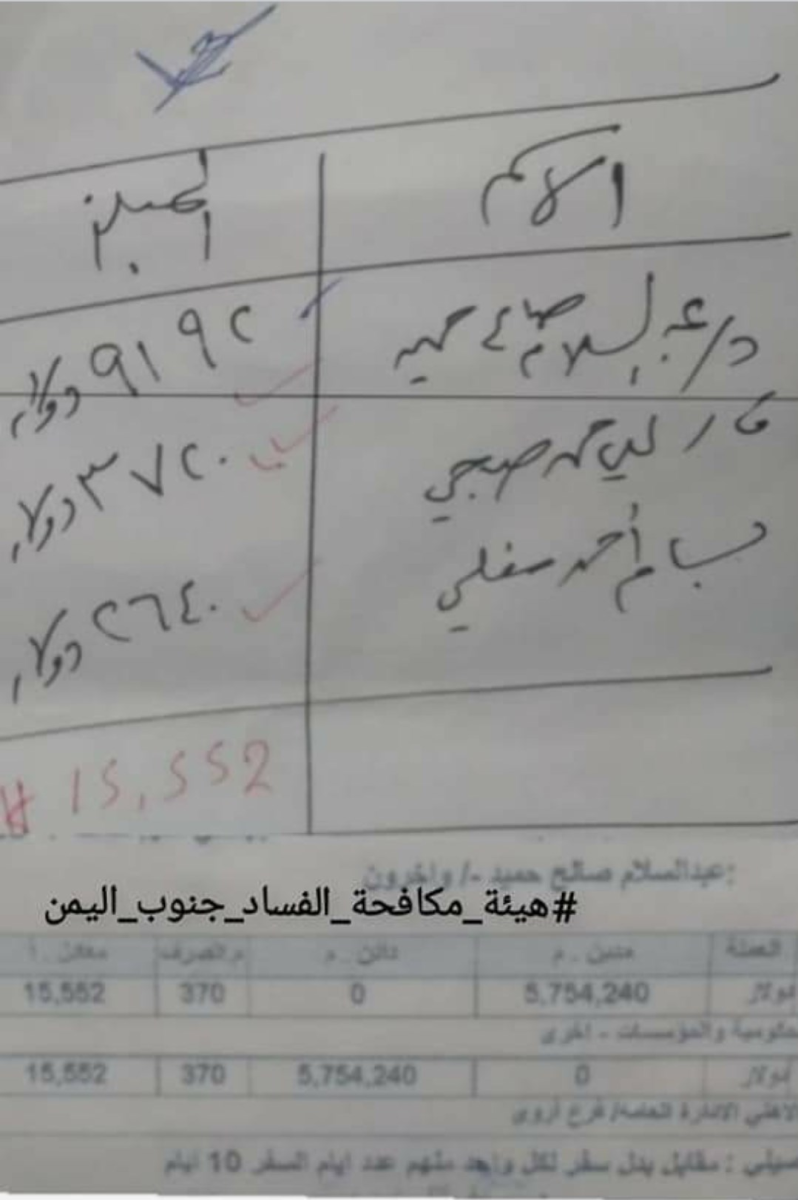 الاسم المبلغ
د/عبدالسلام صالح حميد ٩١٩٢ دولار
حمد صبحي ٣٧٢٠ دولار
بسام أحمد سفلي ٢٦٤٠ دولار
# 15,552
عبدالسلام صالح حميد -/ واخرون:
#هيئة_مكافحة_الفساد_جنوب_اليمن
العملة مدين . م دائن . م م.الصرف معادل . أ
دولار 5,754,240 0 370 15,552
حكومية والمؤسسات - اخرى
دولار 0 5,754,240 370 15,552
الاهلي الادارة العامة/ فرع أروى
مقابل بدل سفر لكل واحد منهم عدد ايام السفر 10 ايام